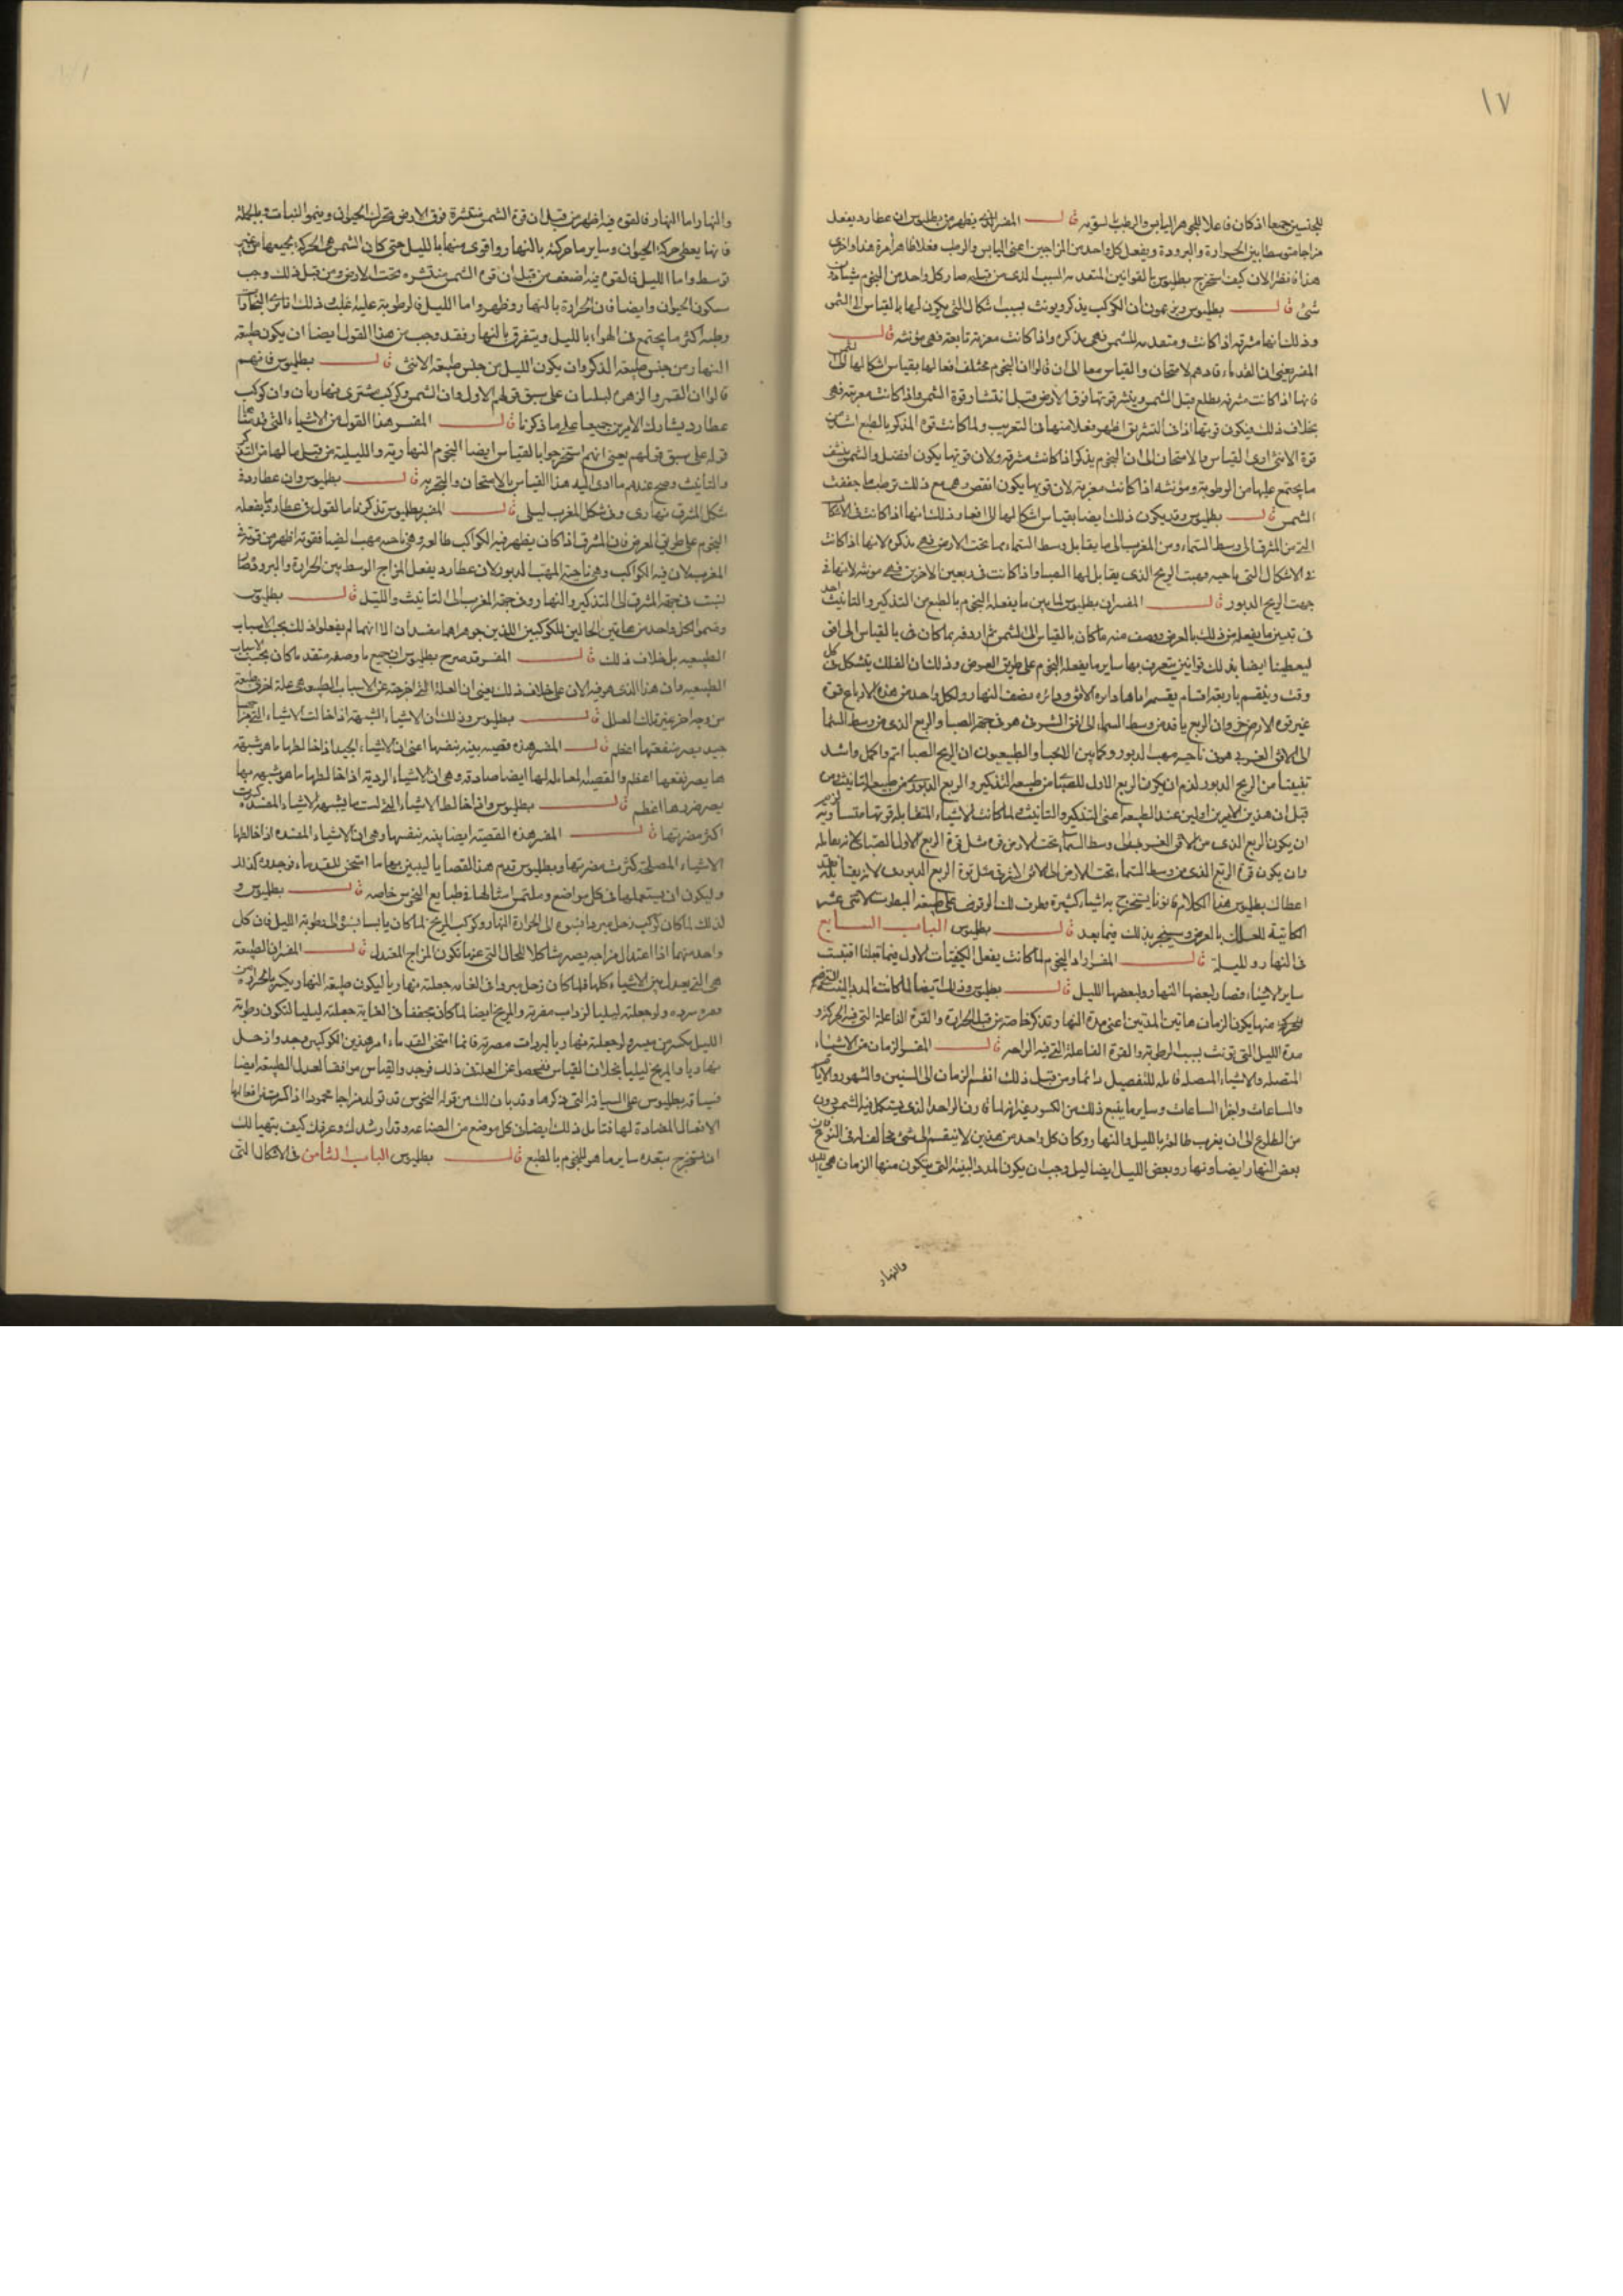 ١٧
للجنسين جميعا اذ كان فاعلا للجوهر اليابس والرطب بالسويه قال المفسر الذي يظهر من بطلميوس ان عطارد يفعل
مزاجا متوسطا بين الحرارة والبرودة ويفعل كل واحد من المزاجين اعني اليابس والرطب فعلا ظاهرا مرة هذا واخرى
هذا فانظر الان كيف استخرج بطلميوس بالقوانين المتقدمه السبب الذي من قبله صار كل واحد من النجوم
شئ قال بطلميوس ويزعمون ان الكواكب يذكر ويونث بسبب اشكال التي يكون لها بالقياس الى الشمس
وذلك انها مشرقه اذا كانت ومتقدمه للشمس فهي مذكره واذا كانت مغربه تابعة فهي مؤنثه قال
المفسر يعني ان القدماء قادهم الامتحان والقياس معا الى ان قالوا ان النجوم مختلف افعالها بقياس اشكالها الى الشمس
فانها اذا كانت مشرقه يطلع قبل الشمس وينتشر قوتها فوق الارض قبل انتشار قوة الشمس واذا كانت مغربه فهي
بخلاف ذلك فيكون قوتها اذا في التشريق اظهر فعلا منها في التغريب ولما كانت قوة المذكر بالطبع اشد من
قوة الانثى ادى القياس والامتحان الى ان النجوم يذكر اذا كانت مشرقه ولان قوتها يكون افضل والشمس ينشف
ما يجتمع عليها من الرطوبة ومؤنثه اذا كانت مغربه لان قوتها يكون انقص وهي مع ذلك ترطب ما جففت
الشمس قال بطلميوس وقد يكون ذلك ايضا بقياس اشكالها الى الافق وذلك انها اذا كانت في الاشكال
التي من المشرق الى وسط السماء ومن المغرب الى ما يقابل وسط السماء مما تحت الارض فهي مذكره لانها اذا كانت
في الاشكال التي ناحيه مهبت الريح الذي يقابل لها الصبا واذا كانت في ربعين الاخرين فهي مونثه لانها في
جهت الريح الدبور قال المفسر ان بطلميوس لما بين ما يفعله النجوم بالطبع من التذكير والتانيث اخذ
في تبيين ما يفعله من ذلك بالعرض ووصف منه ما كان بالقياس الى الشمس ثم اردفه بما كان في بالقياس الى افق
ليعطينا ايضا بذلك قوانين يتعرف بها ساير ما يفعله النجوم على طريق العرض وذلك ان الفلك يتشكل في كل
وقت وينقسم باربعة اقسام يقسم اماها دايره الافق ودائره نصف النهار ولكل واحد من هذه الارباع قوة
غير قوه الاخر وان الربع ياخذ من وسط السماء الى افق الشرق هو في جهة الصبا والربع الذي من وسط السما
الى الافق الغربي هو في ناحيه مهب الدبور وكما بين الانحبا والطبيعيون ان الريح الصبا اتم واكمل واشد
تجفيفا من الريح الدبور لزم ان يكون الربع الاول للصبا من طبيعة التذكير والربع الدبوري من طبيعة التانيث ومن
قبل ان هذين الامرين اولين عند الطبيعة اعني التذكير والتانيث ولما كانت الاشياء المتقابله قوتها متساوية لزم
ان يكون الربع الذي من الافق الغربي الى وسط السماء تحت الارض قوه مثل قوة الربع الاول الصبا لانه يقابله
وان يكون قوة الربع الذي من وسط السماء تحت الارض الى الافق الشرقي مثل قوة الربع الدبوري لانه يقابله فقد
اعطاك بطلميوس هذا الكلام قانونا يستخرج به اشياء كثيرة وطرق لك الوقوف على طبيعة البيوت الاثني عشر
الكاتبة للفلك بالعرض وسيخبر بذلك فيما بعد قال بطلميوس الباب السابع
في النهار والليلة قال المفسر اراد النجوم لما كانت يفعل الكيفيات الاول فيما قبلنا اقتبست
ساير الاشياء فصار لبعضها النهار ولبعضها الليل قال بطلميوس وذلك ايضا لما كانت المدد البينة
المتحركه منها يكون الزمان هاتين المدتين اعني مدة النهار وتذكر خاصته من قبل الحرارة والقوة الفاعلة التي فيه للحركة و
مدة الليل التي تونث بسبب الرطوبة والقوة الفاعلة التي فيه للراحه قال المفسر الزمان من الاشياء
المتصله والاشياء المتصله قابله للتفصيل دائما ومن قبل ذلك انقسم الزمان الى السنين والشهور والايام
والساعات واجزا الساعات وساير ما يتبع ذلك من الكسور غير انه لما كان الواحد الذي يتشكل فيه الشمس دون
من الطلوع الى ان يغرب طالعة بالليل والنهار وكان كل واحد من هذين لا ينقسم الى شئ مخالف له في النوع فان
بعض النهار ايضا ونهار وبعض الليل ايضا ليل وجب ان يكون المدد البينة التي يتكون منها الزمان هي الليل
والنهار
والنهار اما النهار فالقوه فيه اظهر من قبل ان قوة الشمس منتشرة فوق الارض تحرك الحيوان وينمو النبات وبالجملة
فانها يعطي حركة الحيوان وساير ما حركته بالنهار واقوى منها بالليل حتى كان الشمس هي المحركة لجميعها من غير
توسط واما الليل فالقوه فيه اضعف من قبل ان قوه الشمس منتشره تحت الارض ومن قبل ذلك وجب
سكون الحيوان وايضا فان الحرارة بالنهار وظهر واما الليل فالرطوبة عليه اغلب وذلك ان تاثير البخارات
رطبه اكثر ما يجتمع في الهواء بالليل ويتفرق بالنهار فقد وجب من هذا القول ايضا ان يكون طبيعة
النهار من جنس طبيعة الذكر وان يكون الليل من جنس طبيعة الانثى قال بطلميوس فانهم
قالوا ان القمر والزهره ليليان على سبق قولهم الاول وان الشمس وكوكب مشتري نهاريان وان كوكب
عطارد يشارك الامرين جميعا على ما ذكرنا قال المفسر هذا القول من الاشياء التي قد بينا
قوله على سبق قولهم يعني انهم استخرجوا بالقياس ايضا النجوم النهارية والليلية من قبل ما لها من التذكير
والتانيث وصح عندهم ما ادى اليه هذا القياس بالامتحان والتجربه قال بطلميوس وان عطارد في
شكل المشرق نهاري وفي شكل المغرب ليلي قال المفسر بطلميوس تذكرنا ما القول في عطارد ما يفعله
النجوم على طريق العرض فان المشرق اذا كان يظهر فيه الكواكب طالعه وهي ناحيه مهب الصبا فقوته اظهر من قوته في
المغرب لان فيه الكواكب وهي ناحية المهب الدبور لان عطارد يفعل المزاج الوسط بين الحرارة والبرودة
لنسب في جهة المشرق الى التذكير والنهار وفي جهة المغرب الى التانيث والليل قال بطلميوس
وضموا لكل واحد من هاتين الحالين للكوكبين اللذين جوهراهما مفسدان الا انهما لم يفعلوا ذلك بحب الاسباب
الطبيعيه بل بخلاف ذلك قال المفسر قد صرح بطلميوس ان جميع ما وصفه متقدم كان بحسب الاسباب
الطبيعيه وان هذا الذي هو فيه الان على خلاف ذلك يعني ان العلة التي اخرجته عن الاسباب الطبيعيه هي علة اخرى طبيعية
من وجه اخر غير تلك العلل قال بطلميوس وذلك ان الاشياء الشبيهة اذا خالطت الاشياء التي مزاجها
جيد يصير منفعتها اعظم قال المفسر هذه قضيه بينه بنفسها اعني ان الاشياء الجيد اذا خالطها ما هو شبيه
بها يصير نفعها اعظم والقضيه المقابله لها ايضا صادقه وهي ان الاشياء الردية اذا خالطها ما هو شبيه بها
يصير ضررها اعظم قال بطلميوس واذا خالط الاشياء التي ليست ما يشبهها الاشياء المفسده كسرت
اكثر مضرتها قال المفسر هذه القضيه ايضا بينه بنفسها وهي ان الاشياء المفسده اذا خالطها
الاشياء المصلحة كسرت مضرتها وبطلميوس قدم هذه القضايا ليبين بها ما امتحن القدماء فوجدوه كذلك
وليكون ان يستعملها في كل مواضع وملتمس امثالها في طبايع النجوم خاصه قال بطلميوس و
لذلك لما كان كوكب زحل مبردا نسبوه الى الحرارة النهار وكوكب المريخ لما كان يابسا نسبوه الى رطوبة الليل فان كل
واحد منهما اذا اعتدل مزاجه يصير مشاكلا للحال التي عنها تكون المزاج المعتدل قال المفسر ان الطبيعة
هي التي يعدل بين الاشياء كلها فلما كان زحل مبردا في الغايه جعلته نهاريا ليكون طبيعة النهار يكسر بالحرارة
ضرره ولو جعلته ليليا لزاد في مضرته والمريخ ايضا لما كان مجففا في الغاية جعلته ليليا لتكون رطوبة
الليل يكسر من يبسه ولو جعلته نهاريا لزادت مضرته فانما امتحن القدماء امر هذين الكوكبين وجدوا زحل
نهاريا والمريخ ليليا بخلاف القياس ففحصوا عن العلة في ذلك فوجد والقياس موافقا لعدل الطبيعة ايضا
بطلميوس على السياقة التي ذكرها وقد بان لك من قوله ان النحوس قد تولد مزاجا محمودا اذا كسرت من افعالها
الافعال المضادة لها فتامل ذلك ايضا في كل موضع من الصناعه وقد ارشدك وعرفك كيف يتهيا لك
ان يستخرج بعده ساير ما هو للنجوم بالطبع قال بطلميوس الباب الثامن في الاشكال التي